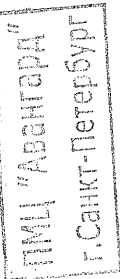 "Авангард"
г. Санкт-Петербург